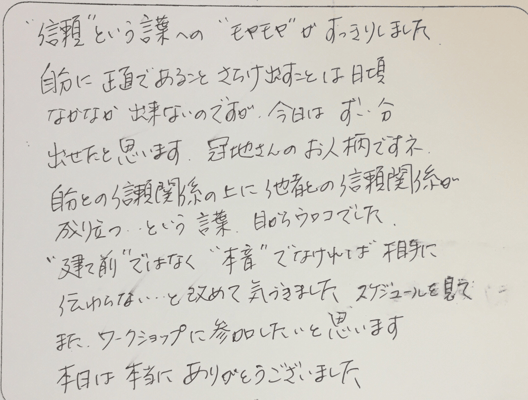 "信頼"という言葉への "モヤモヤ"が すっきりしました
自分に 正直であること さらけ出すことは 日頃
なかなか 出来ないのですが、今日は ずい分
出せたと思います. 冠地さんの お人柄ですネ.
自分との信頼関係の上に 他者との信頼関係が
成り立つ…という言葉、目からウロコでした.
"建て前"ではなく "本音"でなければ 相手に
伝わらない…と改めて 気づきました スケジュールを見て
また、ワークショップに参加したいと思います
本日は 本当に ありがとうございました